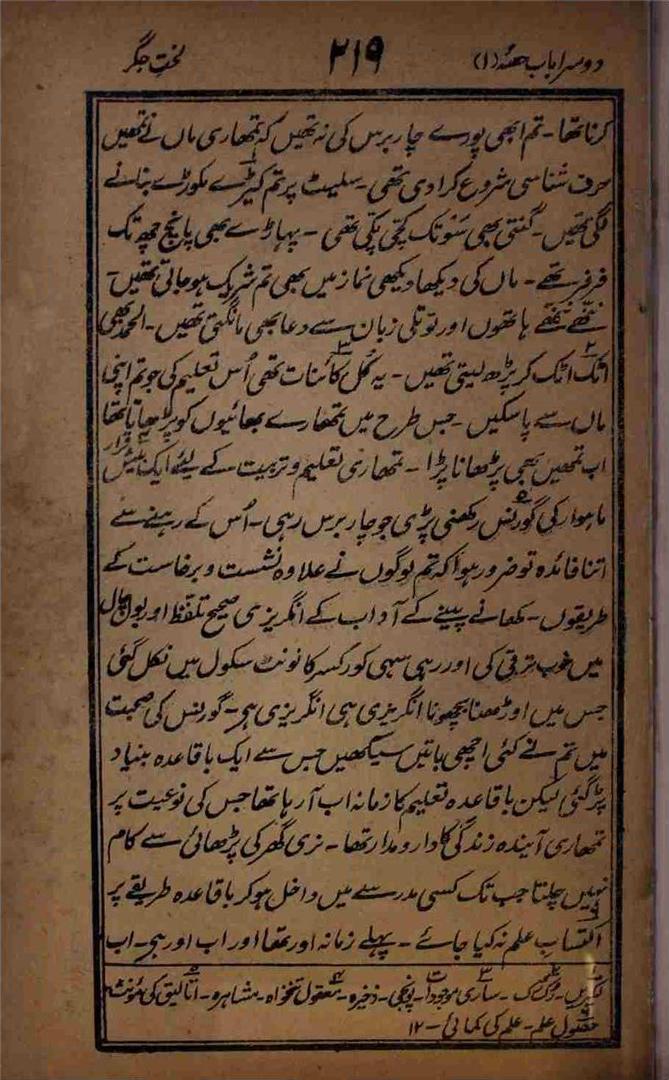 دوسرا باب حصہ (۱) ۲۱۹ لختِ جگر
کرنا تھا۔ تم ابھی پورے چار برس کی نہ تھیں کہ تمھاری ماں نے تمھیں
حرف شناسی شروع کرا دی تھی۔ سلیٹ پر تم کیڑے مکوڑے بنانے
لگی تھیں۔ گنتی بھی سَو تک کچّی پکّی تھی۔ پہاڑے بھی پانچ چھ تک
فرفر تھے۔ ماں کی دیکھا دیکھی نماز میں بھی تم شریک ہو جاتی تھیں۔
ننھے ننھے ہاتھوں اور توتلی زبان سے دعا بھی مانگتی تھیں۔ الحمد بھی
اٹک اٹک کر پڑھ لیتی تھیں۔ یہ کُل کائنات تھی اُس تعلیم کی جو تم اپنی
ماں سے پا سکیں۔ جس طرح میں تمھارے بھائیوں کو پڑھاتا تھا
اب تمھیں بھی پڑھانا پڑا۔ تمھاری تعلیم و تربیت کے لیئے ایک بیش قرار
ماہوار کی گورنس رکھنی پڑی جو چار برس رہی۔ اُس کے رہنے سے
اتنا فائدہ تو ضرور ہوا کہ تم لوگوں نے علاوہ نشست و برخاست کے
طریقوں۔ کھانے پینے کے آداب کے انگریزی صحیح تلفظ اور بول چال
میں خوب ترقی کی اور رہی سہی کور کسر کانونٹ سکول میں نکل گئی
جس میں اوڑھنا بچھونا انگریزی ہی انگریزی ہی۔ گورنس کی صحبت
میں تم نے کئی اچھی باتیں سیکھیں جس سے ایک باقاعدہ بنیاد
پڑ گئی لیکن باقاعدہ تعلیم کا زمانہ اب آ رہا تھا جس کی نوعیت پر
تمھاری آیندہ زندگی کا دار و مدار تھا۔ نری گھر کی پڑھائی سے کام
نہیں چلتا جب تک کسی مدرسے میں داخل ہو کر باقاعدہ طریقے پر
اکتسابِ علم نہ کیا جائے۔ پہلے زمانہ اور تھا اور اب اور ہی۔ اب
رُک رُک۔ ساری موجودات۔ پونجی۔ ذخیرہ۔ معقول تنخواہ۔ مشاہرہ۔ اتالیق کی مؤنث
حصولِ علم۔ علم کی کمائی۔ ۱۲